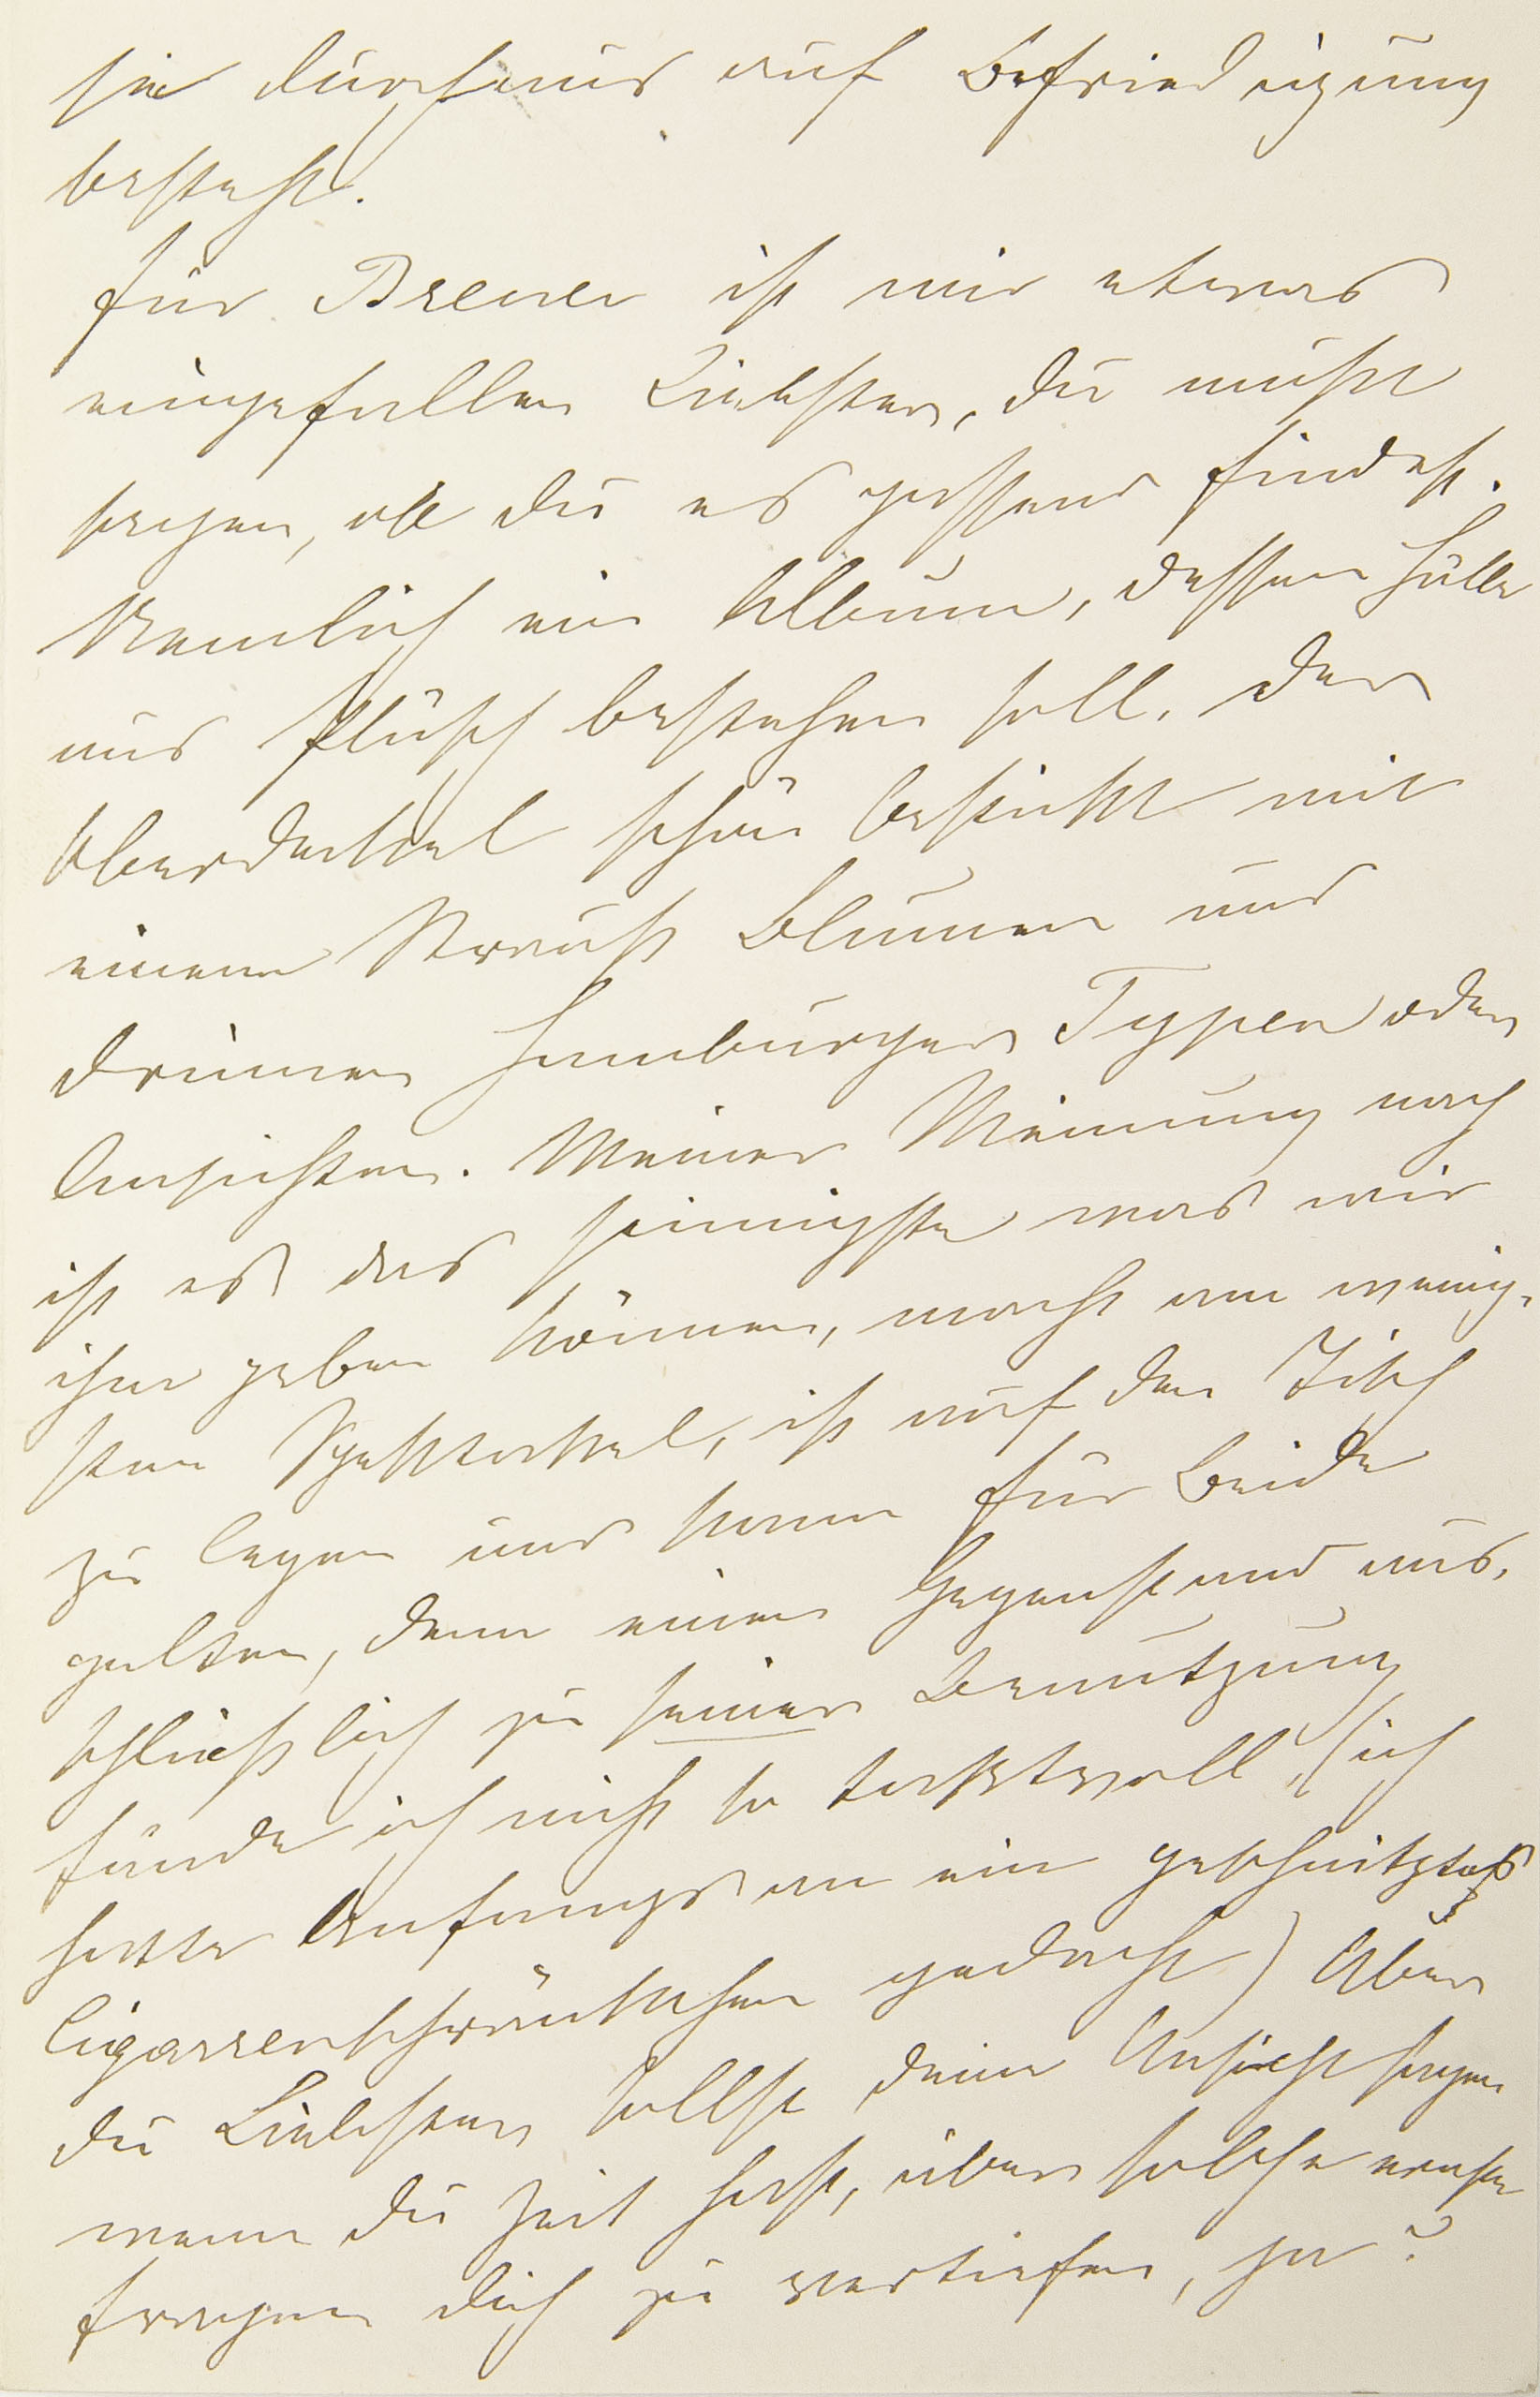 sie durchaus auf Befriedigung
besteht.
Für Breuer ist mir etwas
eingefallen Liebster, Du mußt
sagen, ob Du es passend findest.
Nemlich ein Album, dessen Hülle
aus Plüsch bestehen soll, der
Oberdeckel schön bestickt mit
einem Strauß Blumen und
drinnen Hamburger Typen oder
Ansichten. Meiner Meinung nach
ist es das sinnigste was wir
ihm geben können, macht am wenig-
sten Spektakel, ist auf den Tisch
zu legen und kann für Beide
gelten, denn einen Gegenstand aus-
schließlich zu seiner Benützung
fände ich nicht so taktvoll, (ich
hatte Anfangs an ein geschnitztes
Cigarrenschränkchen gedacht) Aber
Du Liebster sollst deine Ansicht sagen
wenn Du Zeit hast, über solche ernste
Fragen dich zu vertiefen, ja?